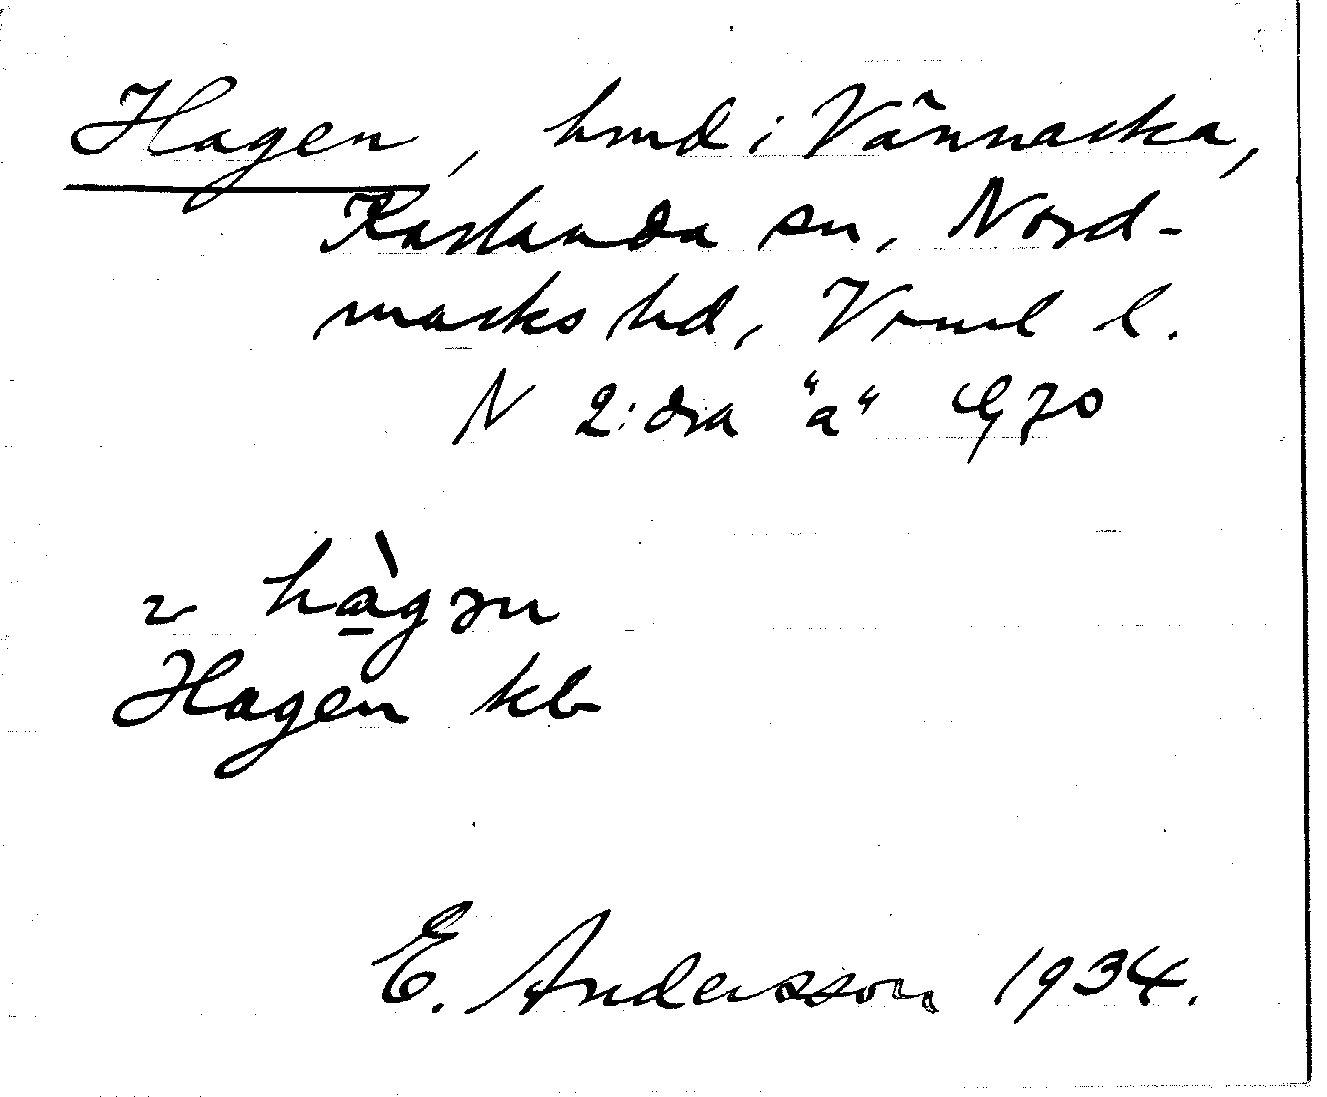 Hagen, hmd i Vännacka,
Karlanda sn, Nord-
marks hd, Vrml l.
N 2:dra "a" G 70
2 hàgən
Hagen kb
E. Andersson 1934.